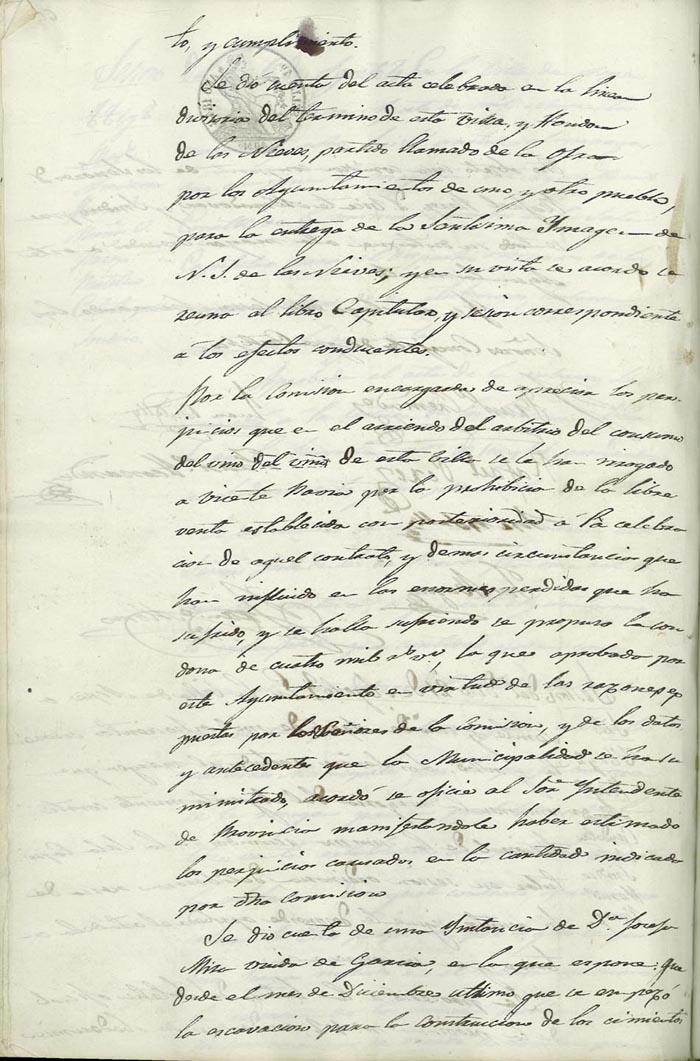 to, y cumplimiento.
Se dio cuenta del acta celebrada en la linea
divisoria del termino de esta villa, y Hondon
de las Nieves, partido llamado de la
por los Ayuntamientos de uno y otro pueblo,
para la entrega de la Santisima Ymagen de
N. S. de las Nieves; y en su vista se acordo se
reuna al libro Capitular, y sesion correspondiente
a los efectos conducentes.
Por la Comision encargada de apreciar los per-
juicios que en el arriendo del arbitrio del consumo
del vino del de esta villa se le han irrogado
a Vicente Navia por la prohibicion de la libre
venta establecida con posterioridad á la celebra
cion de aquel contrato, y demas circunstancias que
han influido en las enormes perdidas que ha
sufrido, y se halla sufriendo se propuso la con-
dona de cuatro mil rs. vn., la que aprobada por
este Ayuntamiento en virtud de las razones ex
puestas por los Señores de la Comision, y de los datos
y antecedentes que la Municipalidad se ha su
ministrado, acordó se oficie al Sor. Yntendente
de Provincia manifestandole haber estimado
los perjuicios causados en la cantidad indicada
por dha comision
Se dio cuenta de una Ynstancia de Da. Josefa
Mira viuda de Garcia, en la que espone: Que
desde el mes de Diciembre ultimo que se empezó
la escavacion para la construccion de los cimientos